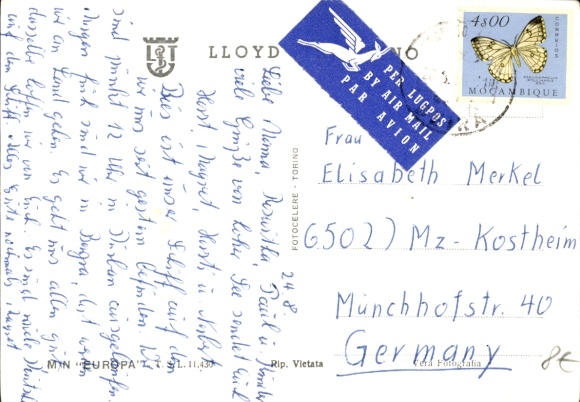 LLOYD
4$00
CORREIOS
MOÇAMBIQUE
PER LUGPOS
BY AIR MAIL
PAR AVION
Frau
Elisabeth Merkel
(6502) Mz-Kostheim
Münchhofstr. 40
Germany
8€
FOTOCELERE - TORINO
M/N "EUROPA" T.S.L. 11.430
Rip. Vietata
Vera Fotografia
24.8
Liebe Mama, Roswitha, Paul u. Kinder
viele Grüße von hoher See sendet Euch
Horst, Margret, Horst, u. Norbert
Dies ist unser Schiff auf dem
wir uns seit gestern befinden. Wir
sind 12 Uhr in Durban ausgelaufen.
Morgen früh sind wir in Beira, dort werden
wir an Land gehen. Es geht uns allen gut
dasselbe hoffen wir von Euch. Es sind viele
auf dem Schiff. Alles Gute nochmals, Margret